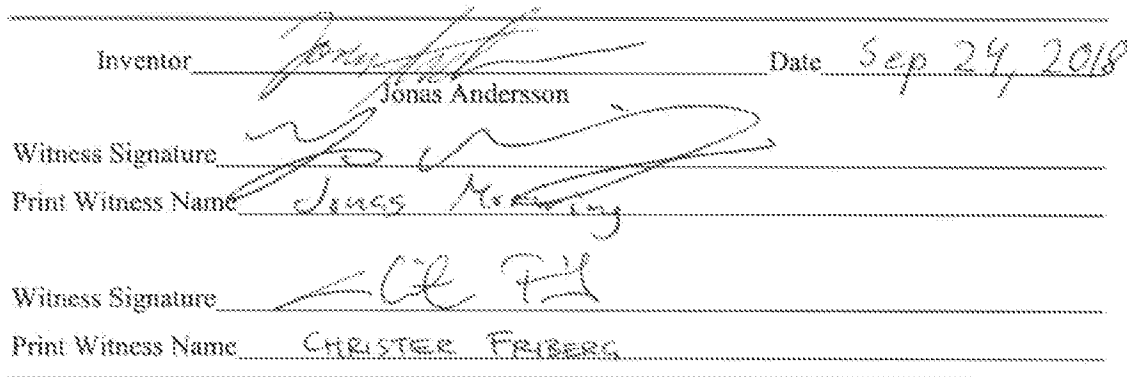 Inventor Date Sep 24, 2018
Jonas Andersson
Witness Signature
Print Witness Name Jonas
Witness Signature
Print Witness Name CHRISTER FRIBERG